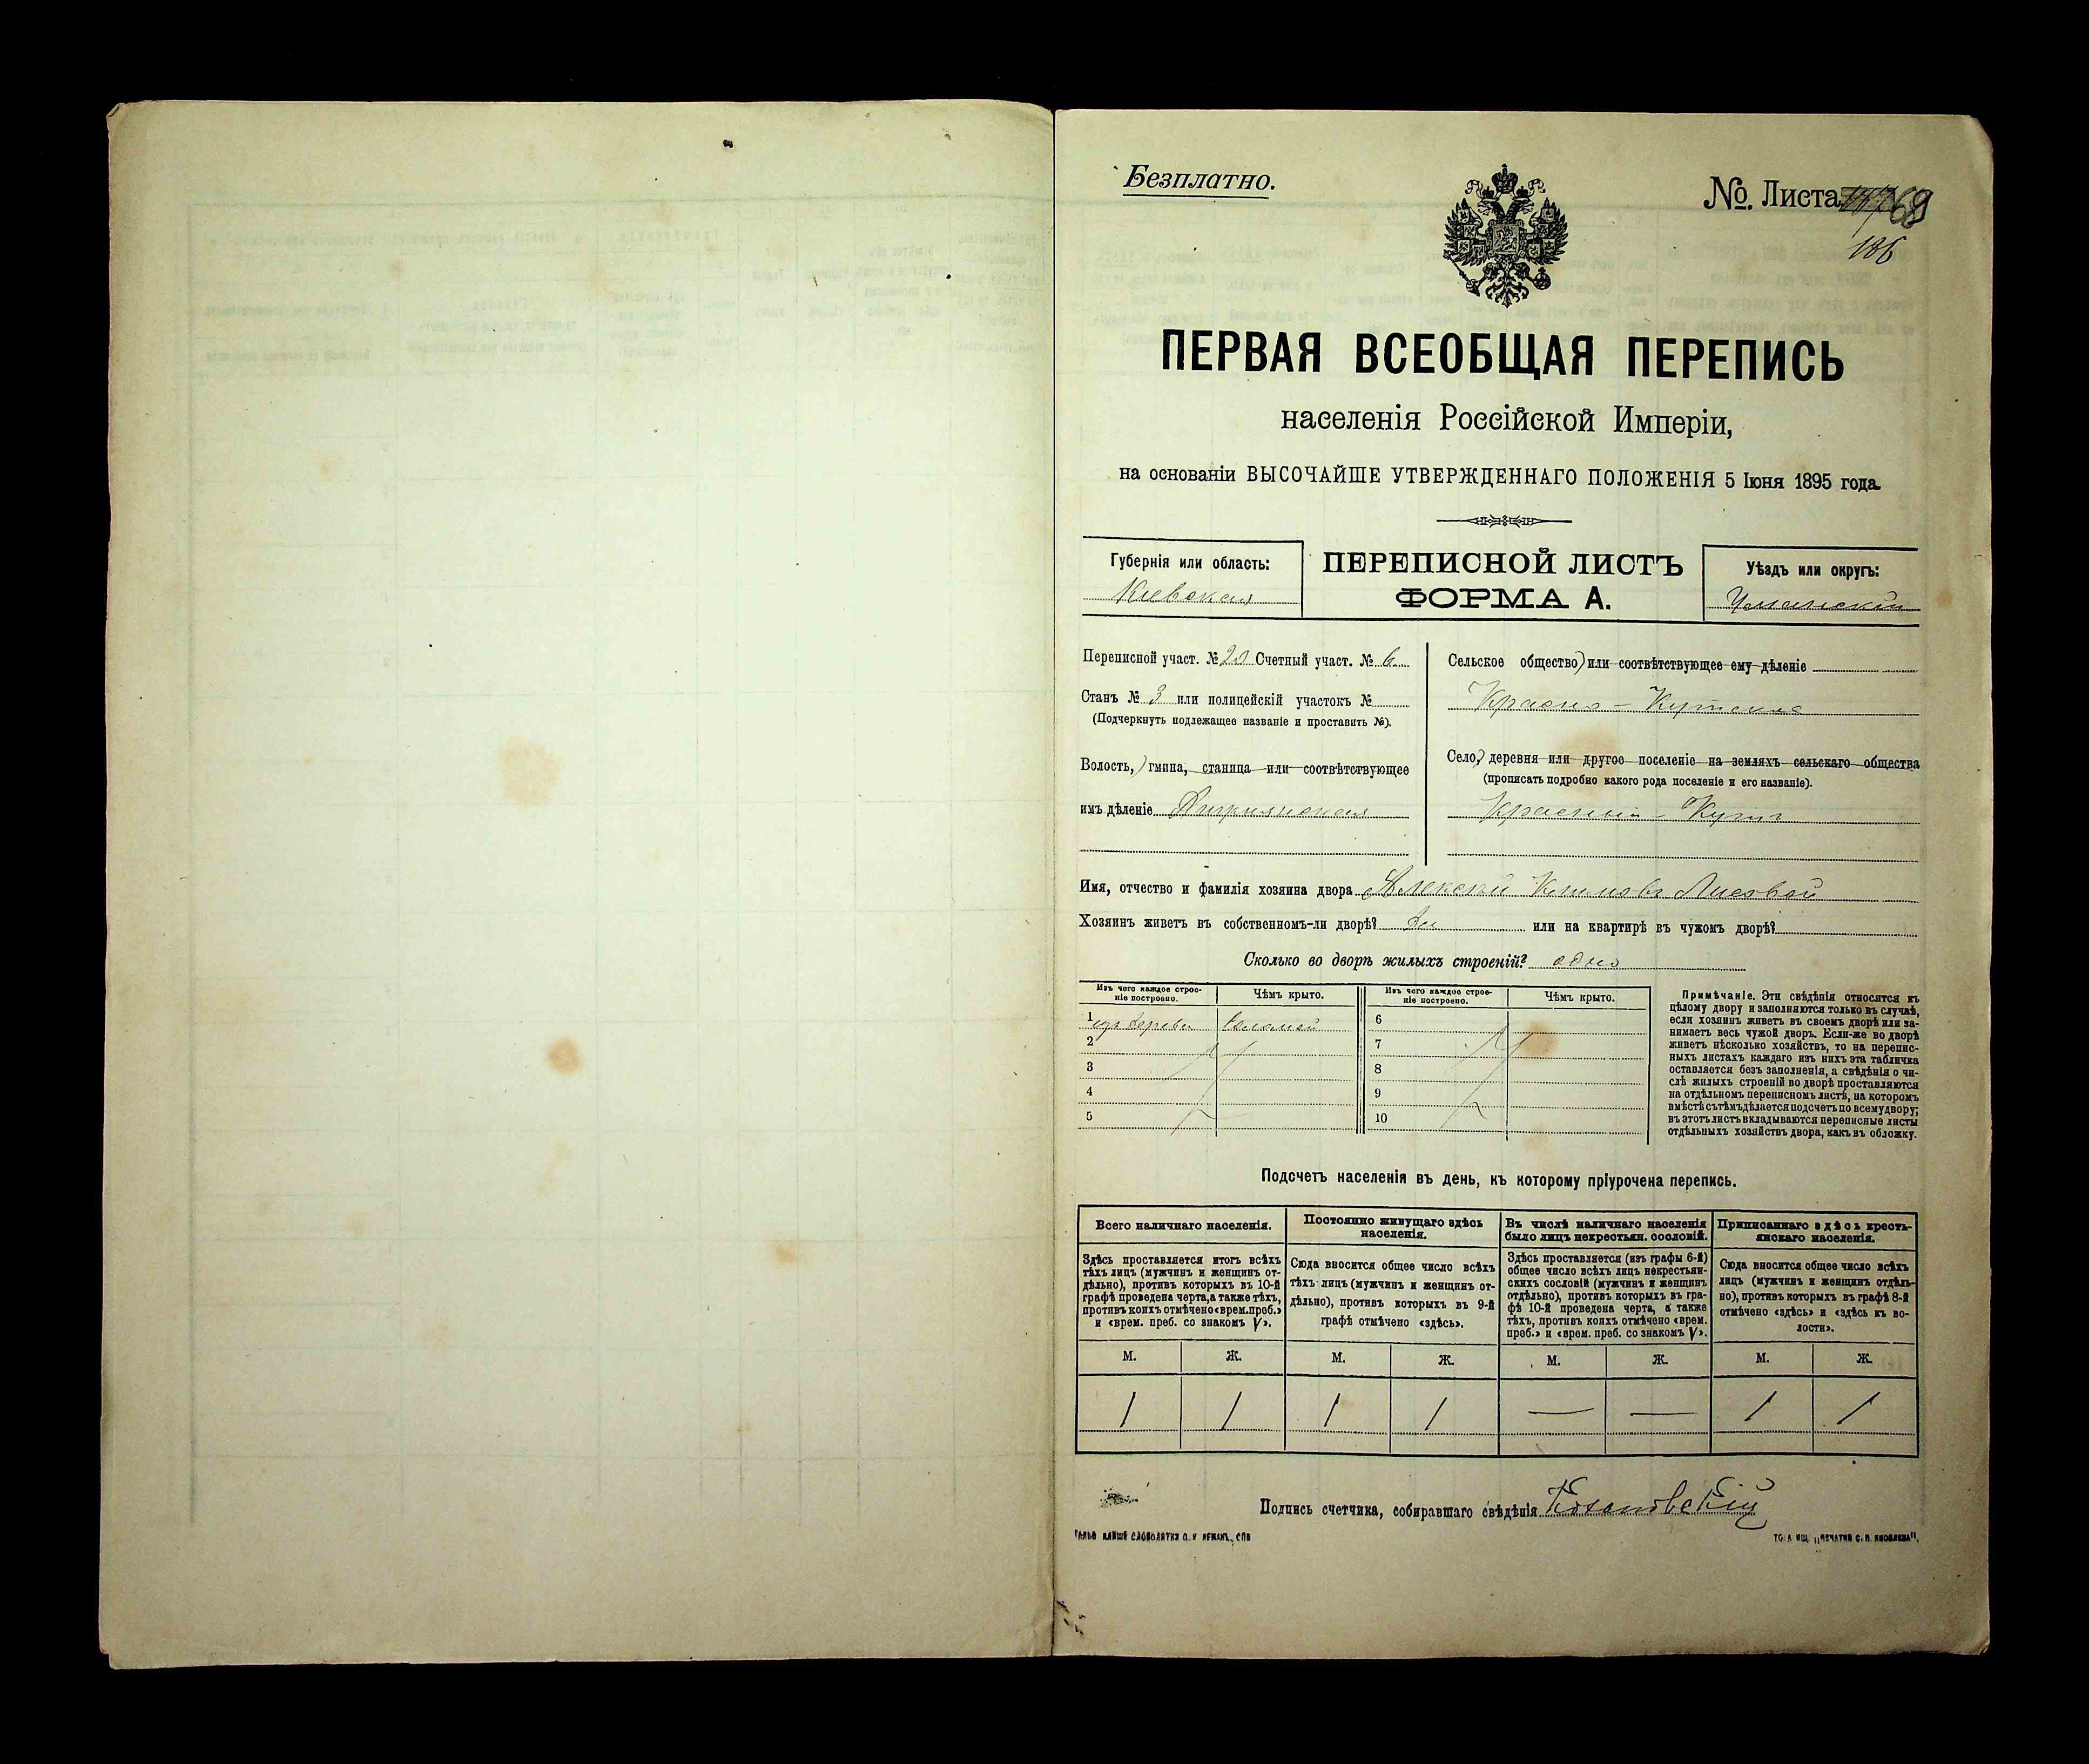 Безплатно.
№. Листа 69
186
ПЕРВАЯ ВСЕОБЩАЯ ПЕРЕПИСЬ
населенія Россійской Имперіи,
на основаніи ВЫСОЧАЙШЕ УТВЕРЖДЕННАГО ПОЛОЖЕНІЯ 5 Іюня 1895 года.
Губернія или область:
Кіевская
ПЕРЕПИСНОЙ ЛИСТЪ
ФОРМА А.
Уѣздъ или округъ:
Уманскій
Переписной участ. № 20 Счетный участ. № 6
Станъ № 3 или полицейскій участокъ №
(Подчеркнуть подлежащее названіе и проставить №).
Волость, гмина, станица или соотвѣтствующее
имъ дѣленіе
Сельское общество или соотвѣтствующее ему дѣленіе
Красно-Кутское
Село, деревня или другое поселеніе на земляхъ сельскаго общества
(прописать подробно какого рода поселеніе и его названіе).
Красный-Кутъ
Имя, отчество и фамилія хозяина двора Алексѣй Лисовой
Хозяинъ живетъ въ собственномъ-ли дворѣ? Да или на квартирѣ въ чужомъ дворѣ?
Сколько во дворѣ жилыхъ строеній? одно
Изъ чего каждое строе-
ніе построено.
Чѣмъ крыто.
Изъ чего каждое строе-
ніе построено.
Чѣмъ крыто.
1 изъ дерева Соломой
2
3
4
5
6
7
8
9
10
Примѣчаніе. Эти свѣдѣнія относятся къ
цѣлому двору и заполняются только въ случаѣ,
если хозяинъ живетъ въ своемъ дворѣ или за-
нимаетъ весь чужой дворъ. Если-же во дворѣ
живетъ нѣсколько хозяйствъ, то на перепис-
ныхъ листахъ каждаго изъ нихъ эта табличка
оставляется безъ заполненія, а свѣдѣнія о чи-
слѣ жилыхъ строеній во дворѣ проставляются
на отдѣльномъ переписномъ листѣ, на которомъ
вмѣстѣ съ тѣмъ дѣлается подсчетъ по всему двору;
въ этотъ листъ вкладываются переписные листы
отдѣльныхъ хозяйствъ двора, какъ въ обложку.
Подсчетъ населенія въ день, къ которому пріурочена перепись.
Всего наличнаго населенія.
Постоянно живущаго здѣсь
населенія.
Въ числѣ наличнаго населенія
было лицъ некрестьян. сословій.
Приписаннаго здѣсь кресть-
янскаго населенія.
Здѣсь проставляется итогъ всѣхъ
тѣхъ лицъ (мужчинъ и женщинъ от-
дѣльно), противъ которыхъ въ 10-й
графѣ проведена черта, а также тѣхъ,
противъ коихъ отмѣчено «врем. преб.»
и «врем. преб. со знакомъ V».
Сюда вносится общее число всѣхъ
тѣхъ лицъ (мужчинъ и женщинъ от-
дѣльно), противъ которыхъ въ 9-й
графѣ отмѣчено «здѣсь».
Здѣсь проставляется (изъ графы 6-й)
общее число всѣхъ лицъ некрестьян-
скихъ сословій (мужчинъ и женщинъ
отдѣльно), противъ которыхъ въ гра-
фѣ 10-й проведена черта, а также
тѣхъ, противъ коихъ отмѣчено «врем.
преб.» и «врем. преб. со знакомъ V».
Сюда вносится общее число всѣхъ
лицъ (мужчинъ и женщинъ отдѣль-
но), противъ которыхъ въ графѣ 8-й
отмѣчено «здѣсь» и «здѣсь къ во-
лости».
М. Ж. М. Ж. М. Ж. М. Ж.
1 1 1 1 — — 1 1
Подпись счетчика, собиравшаго свѣдѣнія